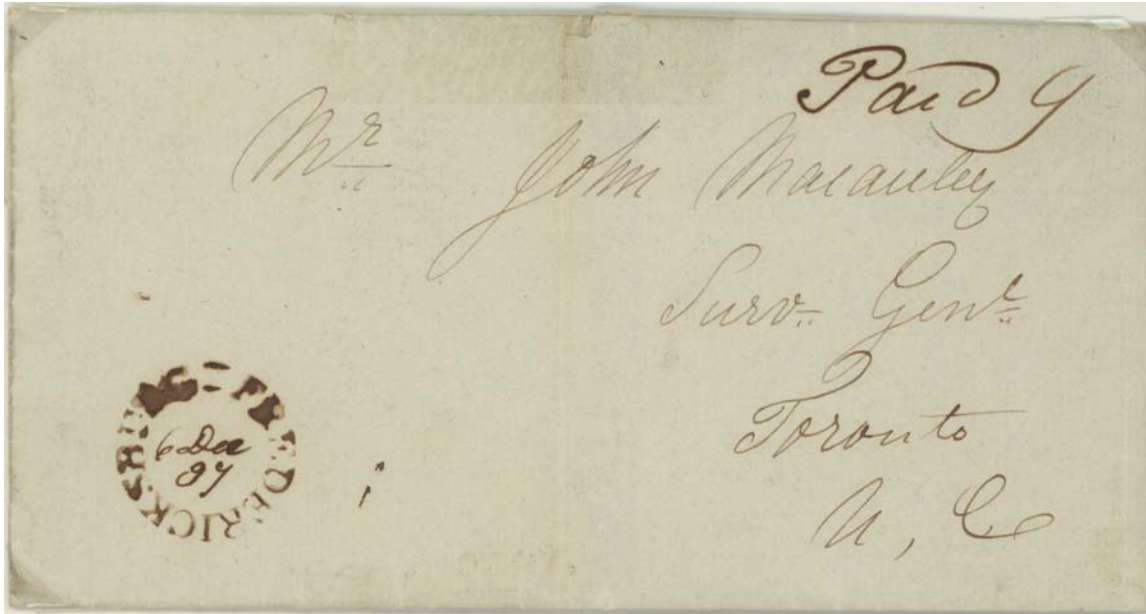 Paid 9
Mr John Macauley
Survr Genl
Toronto
U, C
FREDERICKSBURG
6 Dec
37